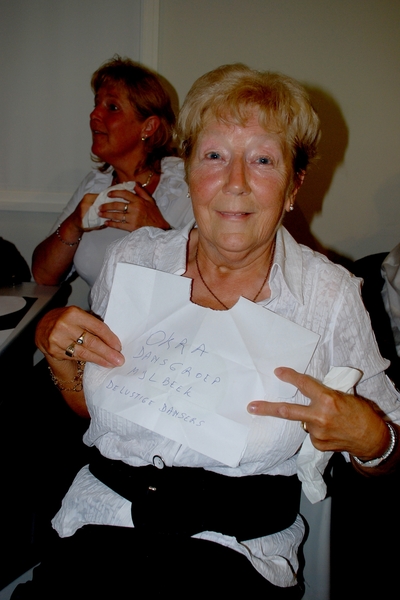 OKRA
DANSGROEP
HJLBECK
DELUSTIGE DANSERS